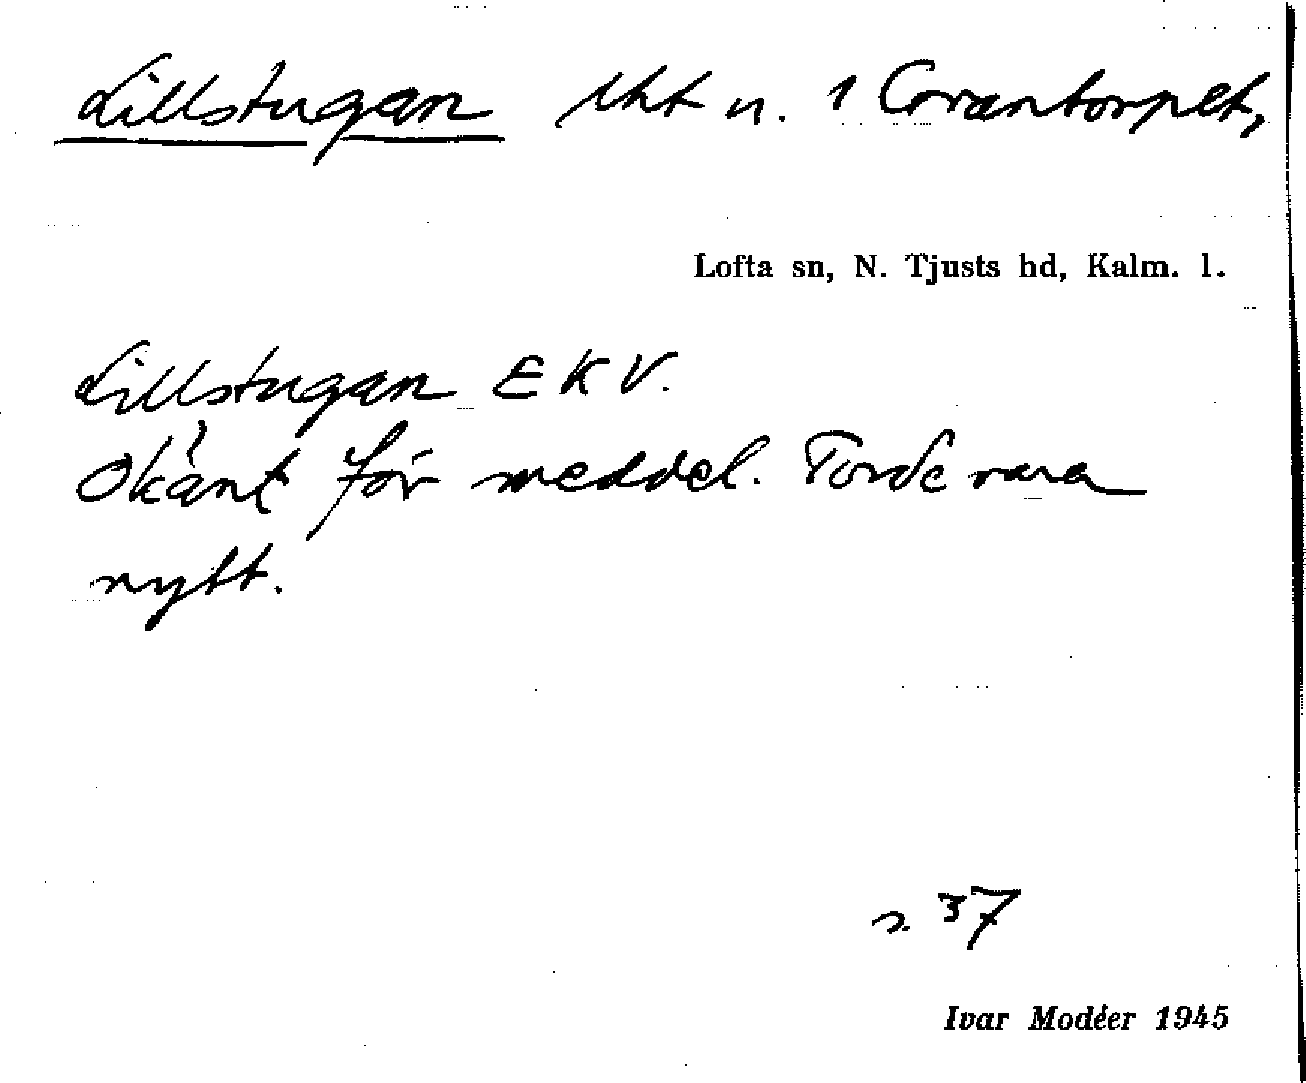 Lillstugan lht u. 1 Grantorpet,
Lofta sn, N. Tjusts hd, Kalm. l.
Lillstugan EKV.
Okänt för meddel. Torde vara
nytt.
s. 37
Ivar Modéer 1945